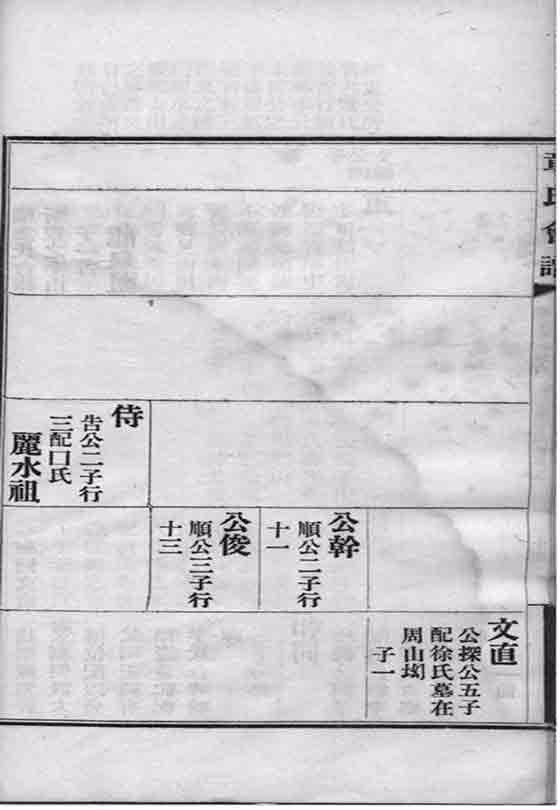 章氏會譜
侍
告公二子行
三配口氏
麗水祖
公幹
順公二子行
十一
公俊
順公三子行
十三
文直
公探公五子
配徐氏墓在
周山㘭
子一